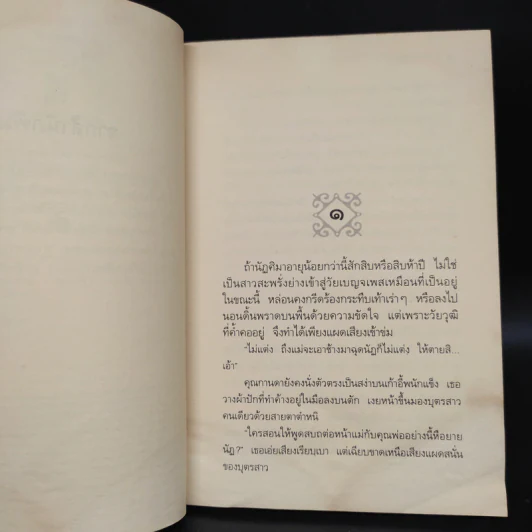 ๑
ถ้านัฎศิมาอายุน้อยกว่านี้สักสิบหรือสิบห้าปี ไม่ใช่
เป็นสาวสะพรั่งย่างเข้าสู่วัยเบญจเพสเหมือนที่เป็นอยู่
ในขณะนี้ หล่อนคงกรีดร้องกระทืบเท้าเร่าๆ หรือลงไป
นอนดิ้นพราดบนพื้นด้วยความขัดใจ แต่เพราะวัยวุฒิ
ที่ค้ำคออยู่ จึงทำได้เพียงแผดเสียงเข้าข่ม
"ไม่แต่ง ถึงแม่จะเอาช้างมาฉุดนัฎก็ไม่แต่ง ให้ตายสิ...
เอ้า"
คุณกานดายังคงนั่งตัวตรงเป็นสง่าบนเก้าอี้พนักแข็ง เธอ
วางผ้าปักที่ทำค้างอยู่ในมือลงบนตัก เงยหน้าขึ้นมองบุตรสาว
คนเดียวด้วยสายตาตำหนิ
"ใครสอนให้พูดสบถต่อหน้าแม่กับคุณพ่ออย่างนี้หือยาย
นัฎ?" เธอเอ่ยเสียงเรียบเบา แต่เฉียบขาดเหนือเสียงแผดสนั่น
ของบุตรสาว